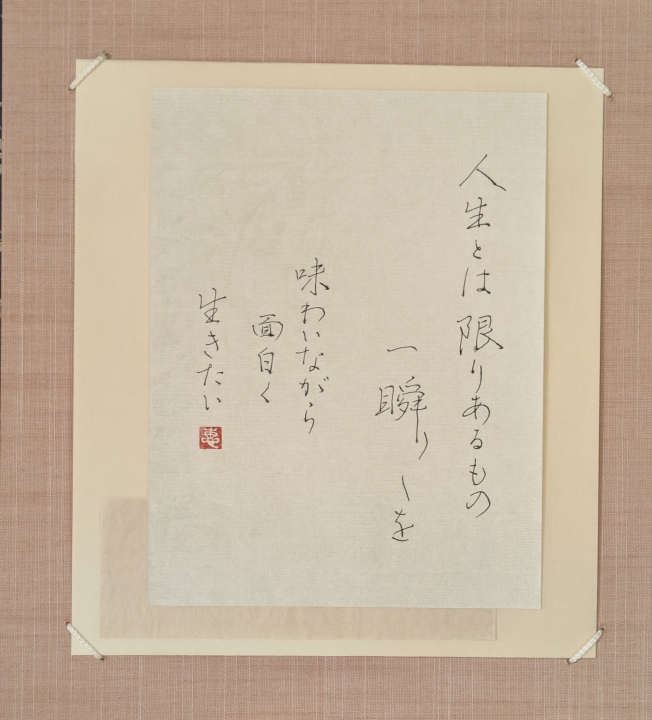 人生とは限りあるもの
一瞬〳〵を
味わいながら
面白く
生きたい
恵